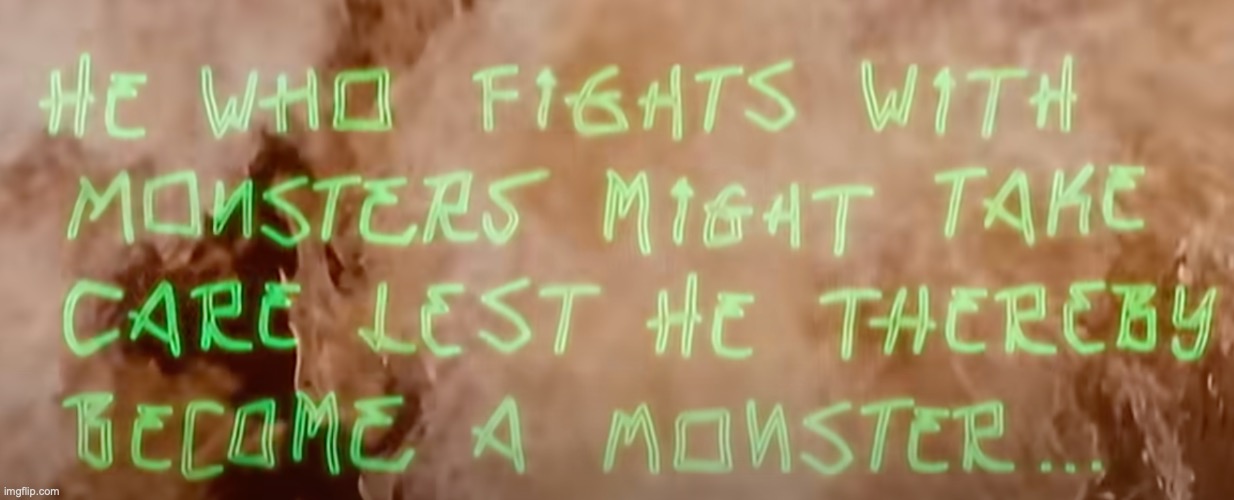 HE WHO FIGHTS WITH
MONSTERS MIGHT TAKE
CARE LEST HE THEREBY
BECOME A MONSTER...
imgflip.com